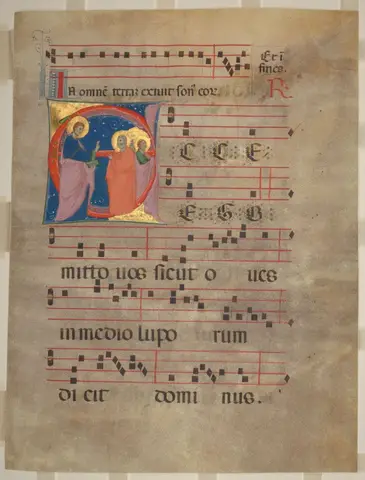 Et ī
fines.
In omnē terraz exiuit son⁹ eor. R
E C C E
E G O
mitto uos sicut o ues
in medio lupo rum
di cit domi nus.